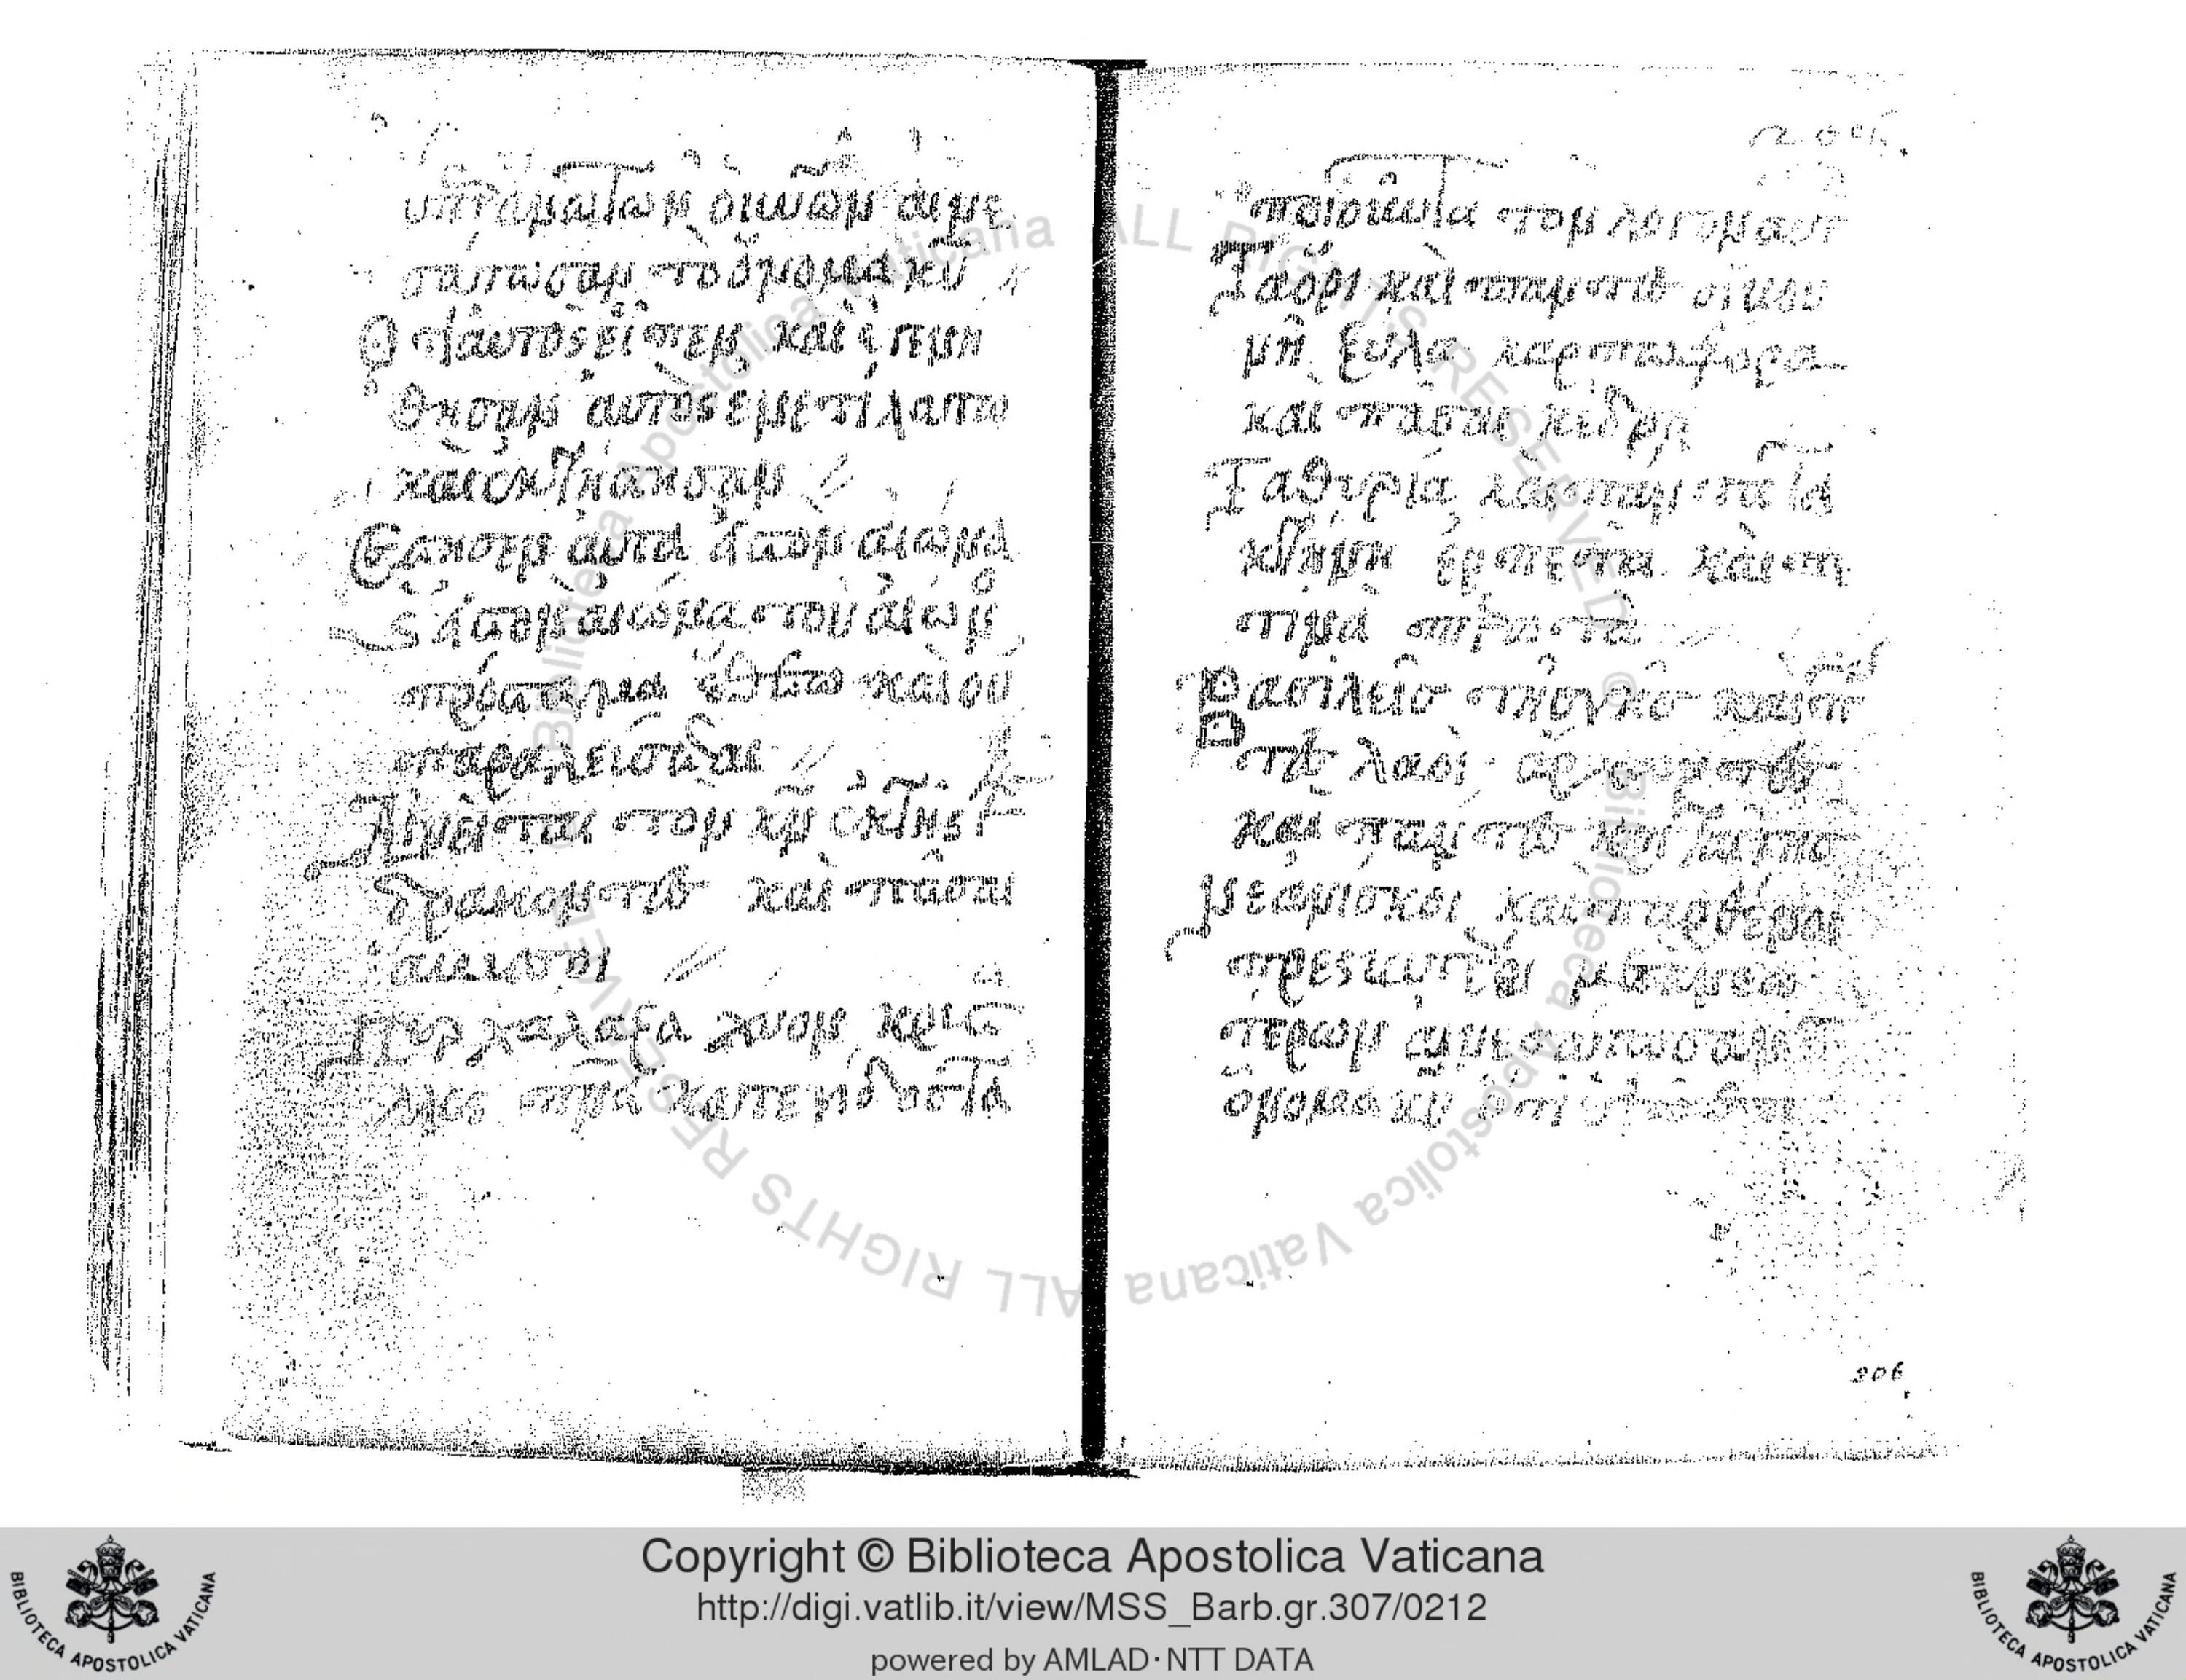 ὑπεράνω τῶν οὐνῶν αἰνε
σάτωσαν τὸ ὄνομα κυ
Ὅτι αὐτὸς εἶπεν καὶ ἐγενη
θησαν αὐτὸς ἐνετίλατω
καὶ ἐκτίσθησαν
Ἔστησεν αὐτὰ εἰς τὸν αἰῶνα
καὶ εἰς τὸν αἰῶνα τοῦ αἰῶνος
πρόσταγμα ἔθετω καὶ οὐ
παρελεύσεται
Αἰνεῖται τὸν κν ἐκ τῆς γῆς
δρακοντες καὶ πᾶσαι
ἄβυσσοι
Πυρ χαλαζα χιον κρυστα
λλος πνα καταιγιδος τὰ
ποιοῦντα τον λογον αυτου
Τὰ ὄρι καὶ παντες οἱ βου
νοὶ ξύλα καρπωφορα
καὶ πᾶσαι κέδροι
Τα θυρία καὶ παντα τὰ
κτήνη ἑρπετὰ καὶ πε
τινὰ πτερωτὰ
Βασιλεῖς τῆς γῆς καὶ πάν
τες λαοὶ ἄρχοντες
και παντες κριταὶ γῆς
Νεανίσκοι καὶ παρθένοι
πρεσβυτεροι μετὰ νεω
τέρων αἰνεσάτωσαν τὸ
ὄνομα κυ ὅτι ὑψώθη
206
Copyright © Biblioteca Apostolica Vaticana
http://digi.vatlib.it/view/MSS_Barb.gr.307/0212
powered by AMLAD·NTT DATA
BIBLIOTECA APOSTOLICA VATICANA
BIBLIOTECA APOSTOLICA VATICANA